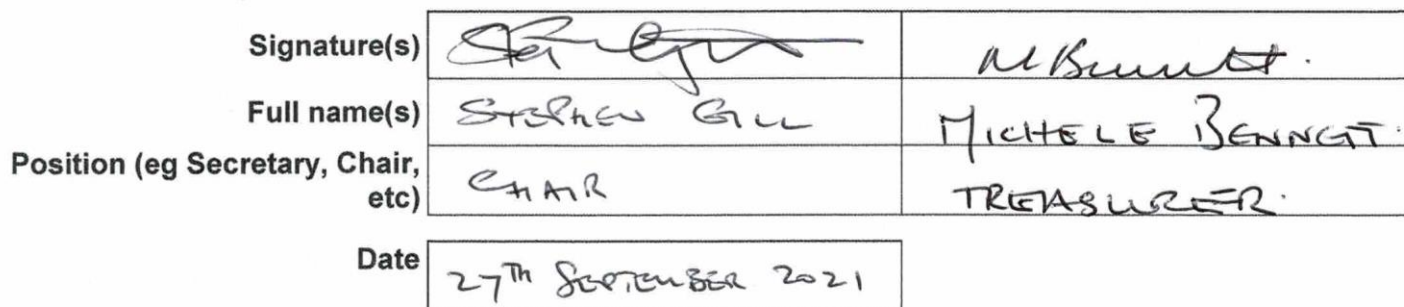 Signature(s) M Bennett.
Full name(s) STEPHEN GILL MICHELE BENNETT.
Position (eg Secretary, Chair, etc) CHAIR TREASURER.
Date 27TH SEPTEMBER 2021